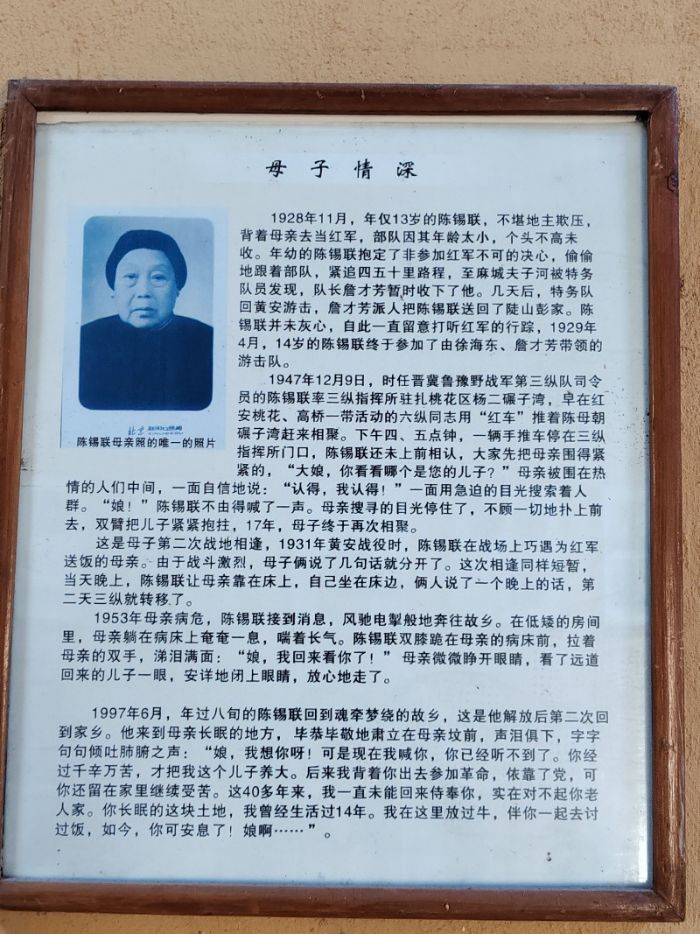 母子情深
1928年11月，年仅13岁的陈锡联，不堪地主欺压，
背着母亲去当红军，部队因其年龄太小，个头不高未
收。年幼的陈锡联抱定了非参加红军不可的决心，偷偷
地跟着部队，紧追四五十里路程，至麻城夫子河被特务
队员发现，队长詹才芳暂时收下了他。几天后，特务队
回黄安游击，詹才芳派人把陈锡联送回了陡山彭家。陈
锡联并未灰心，自此一直留意打听红军的行踪，1929年
4月，14岁的陈锡联终于参加了由徐海东、詹才芳带领的
游击队。
1947年12月9日，时任晋冀鲁豫野战军第三纵队司令
员的陈锡联率三纵指挥所驻扎桃花区杨二碾子湾，早在红
安桃花、高桥一带活动的六纵同志用“红车”推着陈母朝
碾子湾赶来相聚。下午四、五点钟，一辆手推车停在三纵
指挥所门口，陈锡联还未上前相认，大家先把母亲围得紧
紧的，“大娘，你看看哪个是您的儿子？”母亲被围在热
陈锡联母亲照的唯一的照片
情的人们中间，一面自信地说：“认得，我认得！”一面用急迫的目光搜索着人
群。“娘！”陈锡联不由得喊了一声。母亲搜寻的目光停住了，不顾一切地扑上前
去，双臂把儿子紧紧抱拄，17年，母子终于再次相聚。
这是母子第二次战地相逢，1931年黄安战役时，陈锡联在战场上巧遇为红军
送饭的母亲。由于战斗激烈，母子俩说了几句话就分开了。这次相逢同样短暂，
当天晚上，陈锡联让母亲靠在床上，自己坐在床边，俩人说了一个晚上的话，第
二天三纵就转移了。
1953年母亲病危，陈锡联接到消息，风驰电掣般地奔往故乡。在低矮的房间
里，母亲躺在病床上奄奄一息，喘着长气。陈锡联双膝跪在母亲的病床前，拉着
母亲的双手，涕泪满面：“娘，我回来看你了！”母亲微微睁开眼睛，看了远道
回来的儿子一眼，安详地闭上眼睛，放心地走了。
1997年6月，年过八旬的陈锡联回到魂牵梦绕的故乡，这是他解放后第二次回
到家乡。他来到母亲长眠的地方，毕恭毕敬地肃立在母亲坟前，声泪俱下，字字
句句倾吐肺腑之声：“娘，我想你呀！可是现在我喊你，你已经听不到了。你经
过千辛万苦，才把我这个儿子养大。后来我背着你出去参加革命，依靠了党，可
你还留在家里继续受苦。这40多年来，我一直未能回来侍奉你，实在对不起你老
人家。你长眠的这块土地，我曾经生活过14年。我在这里放过牛，伴你一起去讨
过饭，如今，你可安息了！娘啊……”。